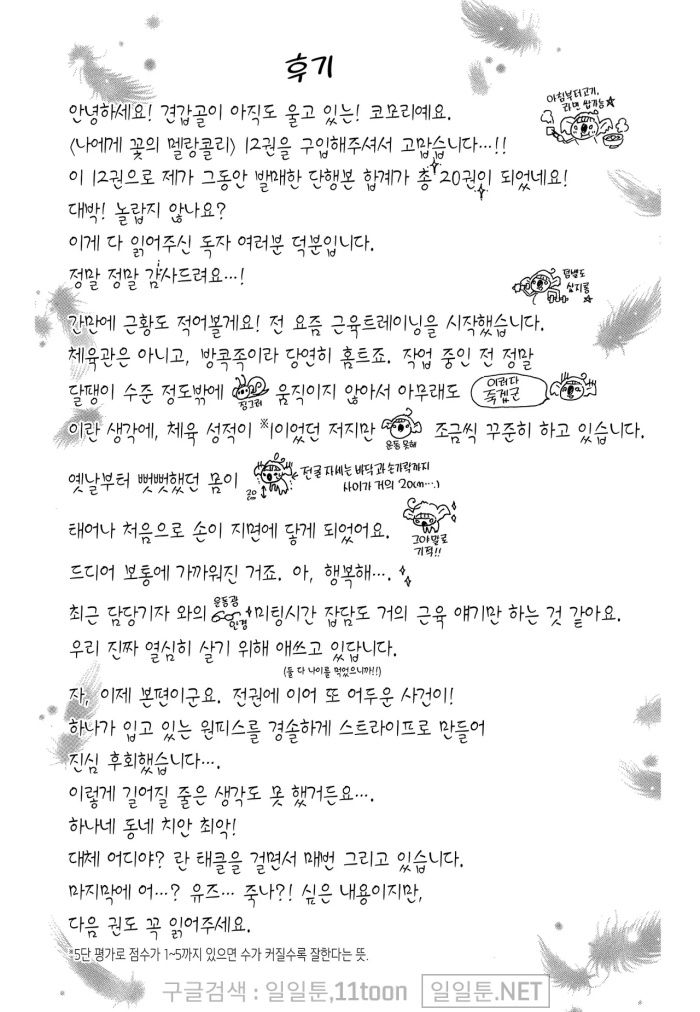 후기
안녕하세요! 견갑골이 아직도 울고 있는! 코모리예요.
아침부터 고기,
라면 쌉가능☆
〈나에게 꽃의 멜랑콜리〉 12권을 구입해주셔서 고맙습니다…!!
이 12권으로 제가 그동안 발매한 단행본 합계가 총 20권이 되었네요!
대박! 놀랍지 않나요?
이게 다 읽어주신 독자 여러분 덕분입니다.
정말 정말 감사드려요…!
덤벨도
심지롱
☆
간만에 근황도 적어볼게요! 전 요즘 근육트레이닝을 시작했습니다.
체육관은 아니고, 방콕족이라 당연히 홈트죠. 작업 중인 전 정말
달팽이 수준 정도밖에 징그러 움직이지 않아서 아무래도 이러다 죽겠군
이란 생각에, 체육 성적이 ※1이었던 저지만 운동 못해 조금씩 꾸준히 하고 있습니다.
옛날부터 뻣뻣했던 몸이 20cm 전굴 자세는 바닥과 손가락까지
사이가 거의 20cm….
태어나 처음으로 손이 지면에 닿게 되었어요. 그야말로
기적!!
드디어 보통에 가까워진 거죠. 아, 행복해….
최근 담당기자 와의 운동광 안경 미팅시간 잡담도 거의 근육 얘기만 하는 것 같아요.
우리 진짜 열심히 살기 위해 애쓰고 있답니다.
(둘 다 나이를 먹었으니까!!)
자, 이제 본편이군요. 전권에 이어 또 어두운 사건이!
하나가 입고 있는 원피스를 경솔하게 스트라이프로 만들어
진심 후회했습니다….
이렇게 길어질 줄은 생각도 못 했거든요….
하나네 동네 치안 최악!
대체 어디야? 란 태클을 걸면서 매번 그리고 있습니다.
마지막에 어…? 유즈… 죽나?! 싶은 내용이지만,
다음 권도 꼭 읽어주세요.
*5단 평가로 점수가 1~5까지 있으면 수가 커질수록 잘한다는 뜻.
구글검색 : 일일툰,11toon 일일툰.NET